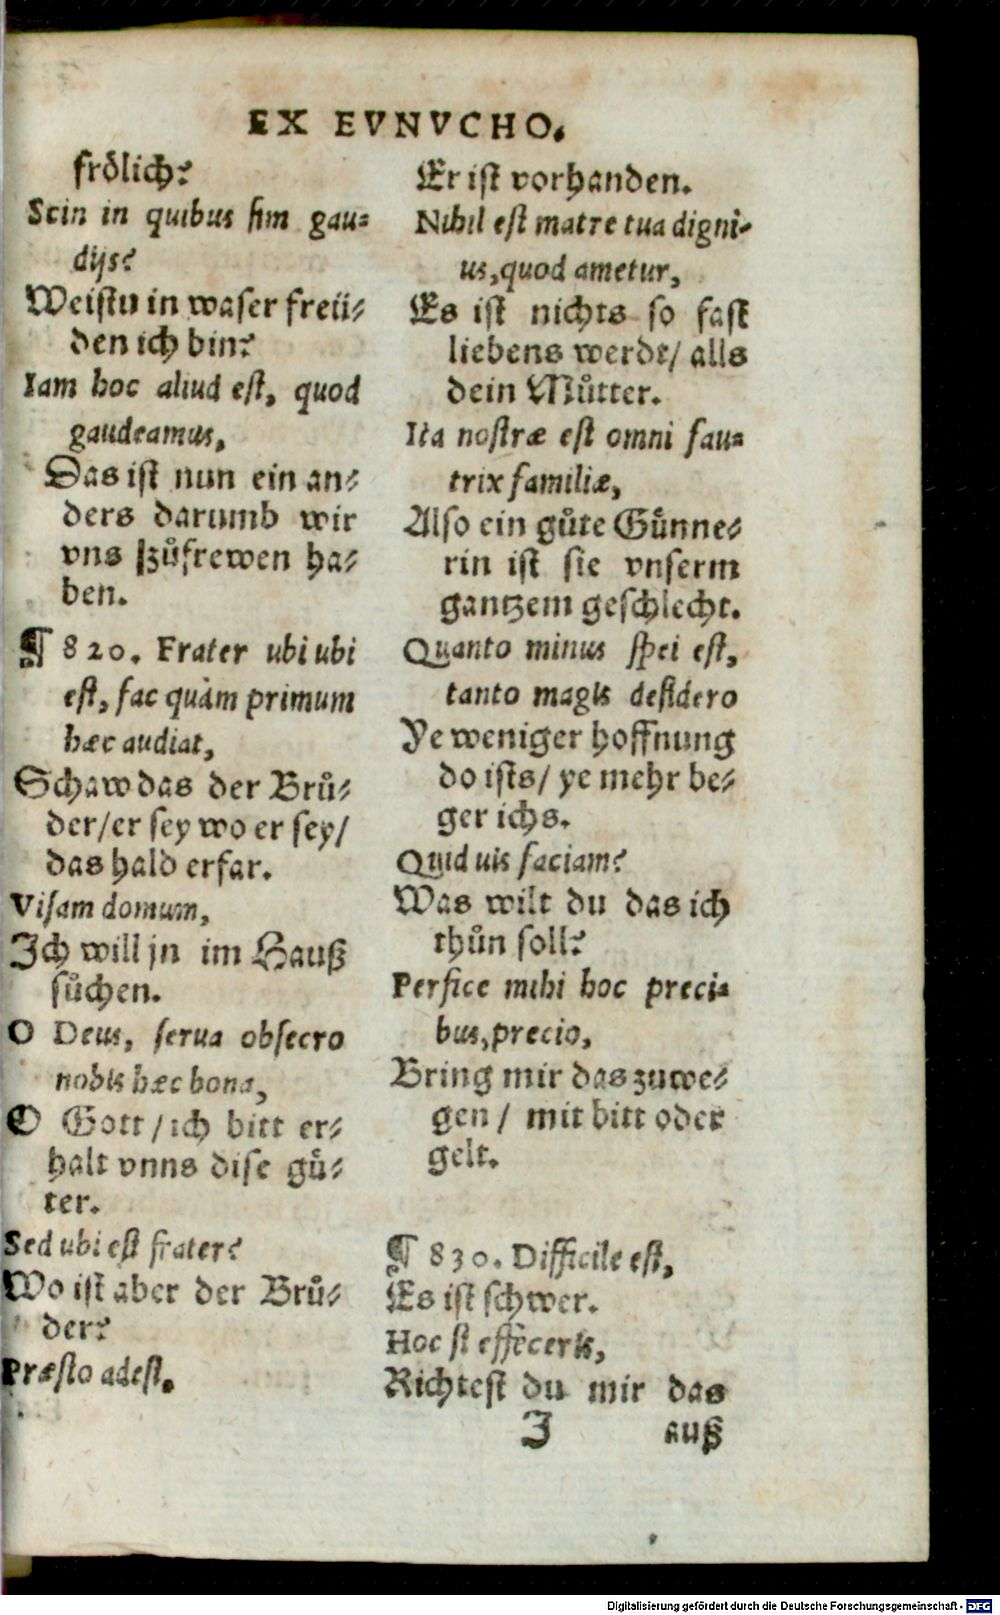 EX EVNVCHO.
froͤlich?
Scin in quibus sim gau-
dijs?
Weistu in waser freü-
den ich bin?
Iam hoc aliud est, quod
gaudeamus,
Das ist nun ein an-
ders darumb wir
vns zuͦfrewen ha-
ben.
¶ 820. Frater ubi ubi
est, fac quàm primum
hæc audiat,
Schaw das der Bruͦ-
der/er sey wo er sey/
das bald erfar.
Visam domum,
Ich will jn im Hauß
suͦchen.
O Deus, serua obsecro
nobis hæc bona,
O Gott/ich bitt er-
halt vnns dise guͤ-
ter.
Sed ubi est frater?
Wo ist aber der Bruͦ-
der?
Præsto adest.
Er ist vorhanden.
Nihil est matre tua digni-
us, quod ametur,
Es ist nichts so fast
liebens werdt/ alls
dein Muͦtter.
Ita nostræ est omni fau-
trix familiæ,
Also ein guͦte Guͤnne-
rin ist sie vnserm
gantzem geschlecht.
Quanto minus spei est,
tanto magis desidero
Ye weniger hoffnung
do ists/ ye mehr be-
ger ichs.
Quid uis faciam?
Was wilt du das ich
thuͦn soll?
Perfice mihi hoc preci-
bus, precio,
Bring mir das zuwe-
gen / mit bitt oder
gelt.
¶ 830. Difficile est,
Es ist schwer.
Hoc si effèceris,
Richtest du mir das
I auß
Digitalisierung gefördert durch die Deutsche Forschungsgemeinschaft - DFG